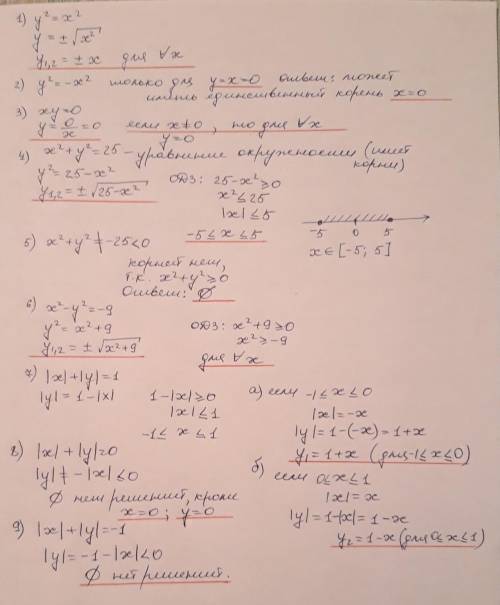 1) y² = x²
y = ± √x²
y₁,₂ = ± x для ∀x
2) y² = -x² только для y=x=0 Ответ: может
иметь единственный корень x=0
3) xy=0
y = 0/x = 0 если x≠0, то для ∀x
y=0
4) x²+y²=25 - уравнение окружности (имеет
корни)
y² = 25-x² ОДЗ: 25-x²≥0
y₁,₂ = ± √25-x² x²≤25
|x|≤5
-5≤x≤5
-5 0 5
x∈[-5; 5]
5) x²+y²≠-25<0
корней нет,
т.к. x²+y²≥0
Ответ: ∅
6) x²-y²=-9
y²=x²+9 ОДЗ: x²+9≥0
y₁,₂ = ± √x²+9 x²≥-9
для ∀x
7) |x|+|y|=1
|y|=1-|x| 1-|x|≥0
|x|≤1
-1≤x≤1
а) если -1≤x≤0
|x|=-x
|y|=1-(-x)=1+x
y₁=1+x (для -1≤x≤0)
б) если 0≤x≤1
|x|=x
|y|=1-|x|=1-x
y₂=1-x (для 0≤x≤1)
8) |x|+|y|=0
|y|≠-|x|≤0
∅ нет решений, кроме
x=0; y=0
9) |x|+|y|=-1
|y|=-1-|x|<0
∅ нет решений.